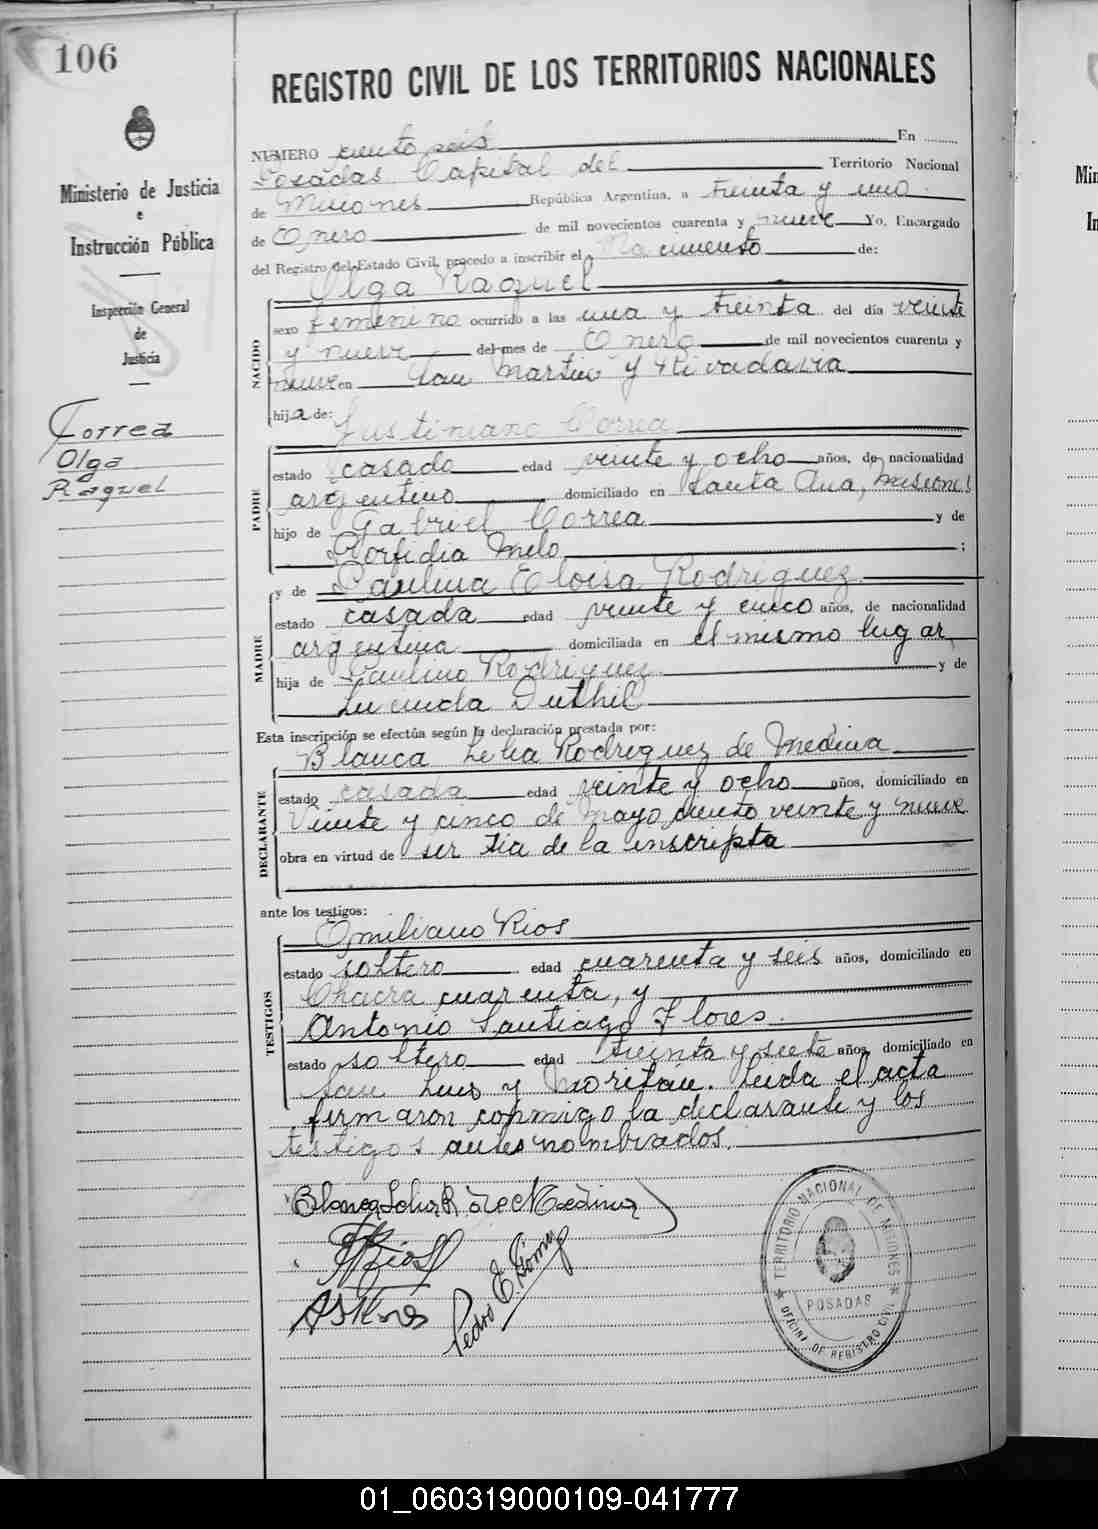 106
REGISTRO CIVIL DE LOS TERRITORIOS NACIONALES
Ministerio de Justicia
e
Instrucción Pública
Inspección General
de
Justicia
Correa
Olga
Raquel
NUMERO ciento seis En
Posadas Capital del Territorio Nacional
de Misiones República Argentina, a treinta y uno
de Enero de mil novecientos cuarenta y nueve Yo, Encargado
del Registro del Estado Civil, procedo a inscribir el Nacimiento de:
NACIDO
Olga Raquel
sexo femenino ocurrido a las una y treinta del día veinte
y nueve del mes de Enero de mil novecientos cuarenta y
nueve en San Martin y Rivadavia
hija de:
Justiniano Correa
PADRE
estado casado edad veinte y ocho años, de nacionalidad
argentino domiciliado en Santa Ana, Misiones
hijo de Gabriel Correa y de
Porfidia Melo ;
y de Paulina Eloisa Rodriguez
MADRE
estado casada edad veinte y cinco años, de nacionalidad
argentina domiciliada en el mismo lugar
hija de Paulino Rodriguez y de
Lucinda Duthil
Esta inscripción se efectúa según la declaración prestada por:
Blanca Lelia Rodriguez de Medina
DECLARANTE
estado casada edad veinte y ocho años, domiciliado en
Veinte y cinco de Mayo ciento veinte y nueve
obra en virtud de ser tia de la inscripta
ante los testigos:
Emiliano Rios
TESTIGOS
estado soltero edad cuarenta y seis años, domiciliado en
Chacra cuarenta, y
Antonio Santiago Flores
estado soltero edad treinta y siete años, domiciliado en
San Luis y Moritán. Leida el acta
firmaron conmigo la declarante y los
testigos antes nombrados.
Blanca Lelia R. de Medina
E Rios
A S Flores
Pedro E. Gómez
TERRITORIO NACIONAL DE MISIONES
POSADAS
OFICINA DE REGISTRO CIVIL
Min
In
01_060319000109-041777